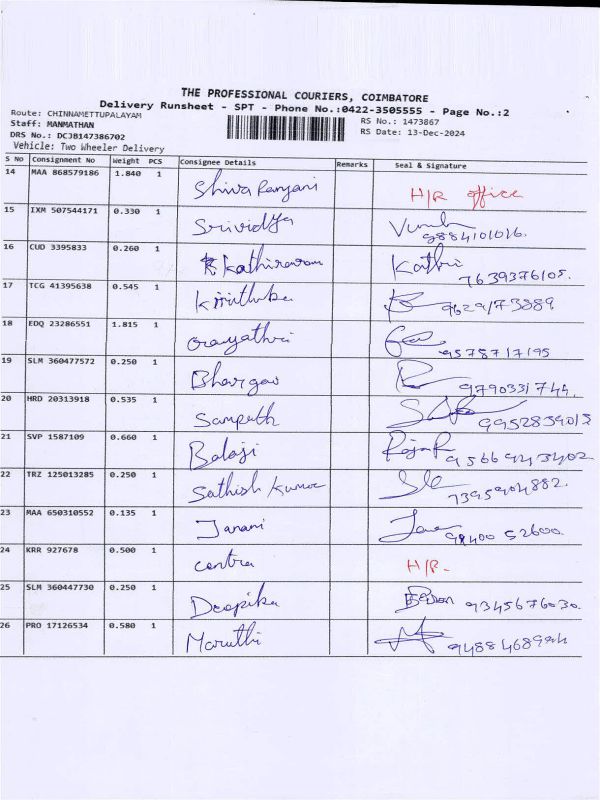 THE PROFESSIONAL COURIERS, COIMBATORE
Delivery Runsheet - SPT - Phone No.:0422-3505555 - Page No.:2
Route: CHINNAMETTUPALAYAM
RS No.: 1473867
Staff: MANMATHAN
RS Date: 13-Dec-2024
DRS No.: DCJB147386702
Vehicle: Two Wheeler Delivery
S No Consignment No Weight PCS Consignee Details Remarks Seal & Signature
14 MAA 868579186 1.840 1 Shiva Ranjani H/R office
15 IXM 507544171 0.330 1 Srividya 9884101016.
16 CUD 3395833 0.260 1 Kathiravan Kathri 7639376105.
17 TCG 41395638 0.545 1 Krithika 9629173889
18 EDQ 23286551 1.815 1 Gayathri 9578717195
19 SLM 360477572 0.250 1 Bhargav 9790331744.
20 HRD 20313918 0.535 1 Sampath 9952839015
21 SVP 1587109 0.660 1 Balaji 9566943402
22 TRZ 125013285 0.250 1 Sathish Kumar 7395904882.
23 MAA 650310552 0.135 1 Janani 98400 52600.
24 KRR 927678 0.500 1 centra H/R-
25 SLM 360447730 0.250 1 Deepika 9345676030.
26 PRO 17126534 0.580 1 Maruthi